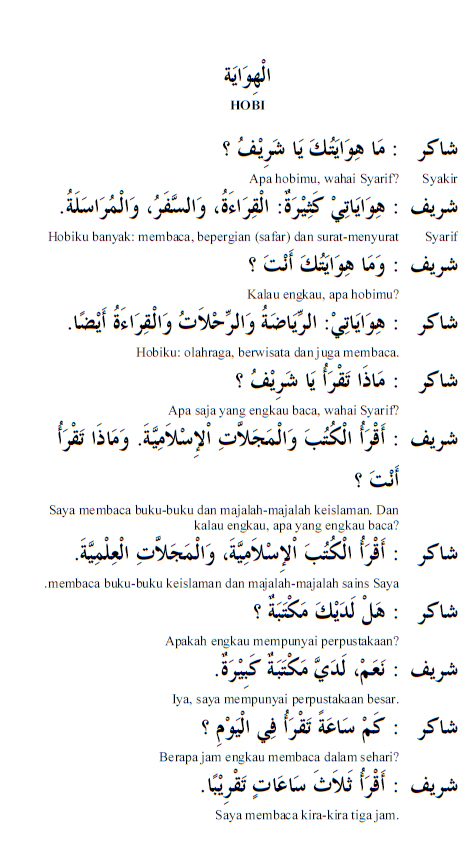 الْهِوَايَة
HOBI
شاكر : مَا هِوَايَتُكَ يَا شَرِيْفُ ؟
Syakir Apa hobimu, wahai Syarif?
شريف : هِوَايَاتِيْ كَثِيْرَةٌ: الْقِرَاءَةُ، وَالسَّفَرُ، وَالْمُرَاسَلَةُ.
Syarif Hobiku banyak: membaca, bepergian (safar) dan surat-menyurat
شريف : وَمَا هِوَايَتُكَ أَنْتَ ؟
Kalau engkau, apa hobimu?
شاكر : هِوَايَاتِيْ: الرِّيَاضَةُ وَالرِّحْلَاتُ وَالْقِرَاءَةُ أَيْضًا.
Hobiku: olahraga, berwisata dan juga membaca.
شاكر : مَاذَا تَقْرَأُ يَا شَرِيْفُ ؟
Apa saja yang engkau baca, wahai Syarif?
شريف : أَقْرَأُ الْكُتُبَ وَالْمَجَلاَّتِ اْلإِسْلاَمِيَّةَ. وَمَاذَا تَقْرَأُ
أَنْتَ ؟
Saya membaca buku-buku dan majalah-majalah keislaman. Dan
kalau engkau, apa yang engkau baca?
شاكر : أَقْرَأُ الْكُتُبَ اْلإِسْلاَمِيَّةَ، وَالْمَجَلاَّتِ الْعِلْمِيَّةَ.
.membaca buku-buku keislaman dan majalah-majalah sains Saya
شاكر : هَلْ لَدَيْكَ مَكْتَبَةٌ ؟
Apakah engkau mempunyai perpustakaan?
شريف : نَعَمْ، لَدَيَّ مَكْتَبَةٌ كَبِيْرَةٌ.
Iya, saya mempunyai perpustakaan besar.
شاكر : كَمْ سَاعَةً تَقْرَأُ فِي الْيَوْمِ ؟
Berapa jam engkau membaca dalam sehari?
شريف : أَقْرَأُ ثَلاَثَ سَاعَاتٍ تَقْرِيْبًا.
Saya membaca kira-kira tiga jam.